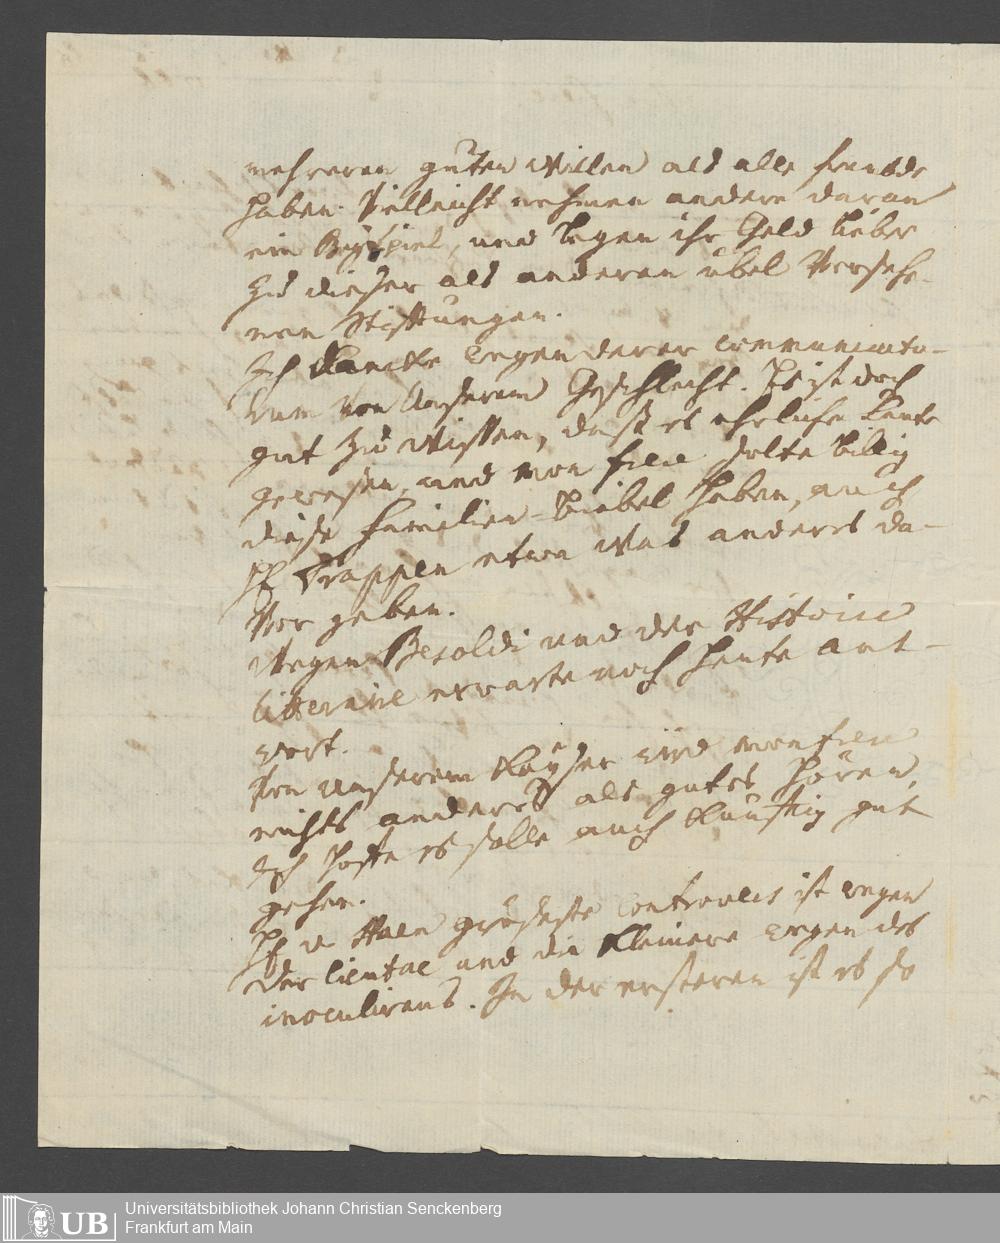 mehreren guten Willen als alle frembde
haben. Vielleicht nehmen andere daran
ein Beyspiel, und legen ihr Geld lieber
zu dieser als anderen übel Versehe-
nen Stiftungen.
Ich dancke wegen derer communicato-
rum von Unserem Geschlecht. Es ist doch
gut zu wissen, daß es ehrliche Leute
gewesen, und mon frere solte billig
diese Familien-Biebel haben, auch
H. Trappen etwa was anders da-
Vor geben.
Wegen Besoldi und der Histoire
litteraire erwarte noch heute Ant-
wort.
Von unserem Kayser wird mon frere
nichts anderes als gutes hören,
Ich hoffe es solle auch künftig gut
gehen.
H. v Haen gröseste controvers ist wegen
der cicutae und die kleinere wegen des
inoculirens. In der ersteren ist es so
Universitätsbibliothek Johann Christian Senckenberg
Frankfurt am Main
UB